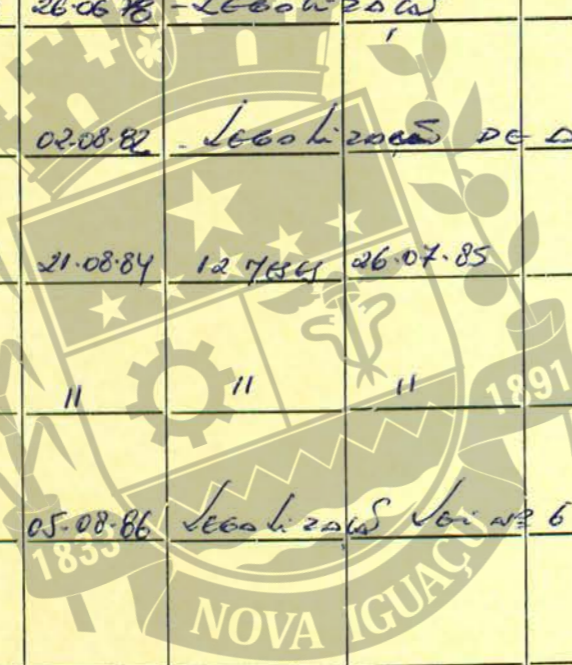 26-06-78 - LEGALIZAÇÃO
02-08-82 - LEGALIZAÇÃO DE
21-08-84 12 MESES 26-07-85
" " "
1891
05-08-86 LEGALIZAÇÃO LEI Nº 6
1833
NOVA IGUAÇU